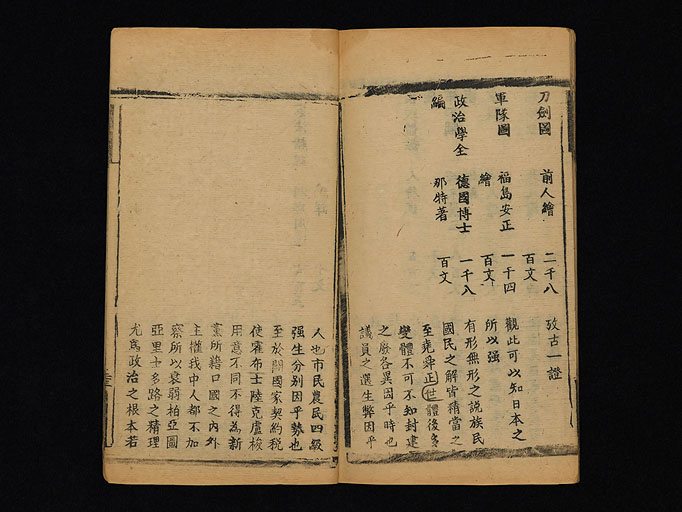 刀劍圖 前人繪 二千八百文 攷古一證
軍隊圖 福島安正繪 一千四百文 觀此可以知日本之所以强
政治學全編 德國博士那特著 一千八百文 有形無形之説族民
國民之解皆精當之
至堯舜正世體後多
變體不可不知封建
之廢各異因乎時也
議員之選生弊因乎
人也市民農民四級
强生分别因乎勢也
至於關國家契約税
使霍布士陸克盧梭
用意不同不得為新
黨所藉口國之內外
主權我中人都不加
察所以衰弱柏亞圖
亞里士多路之精理
尤爲政治之根本若